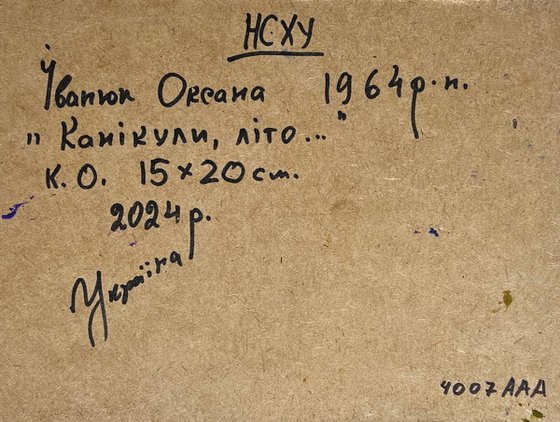 НСХУ
Іванюк Оксана 1964 р.н.
"Канікули, літо..."
К.О. 15×20 см.
2024 р.
Україна
4007 AAA